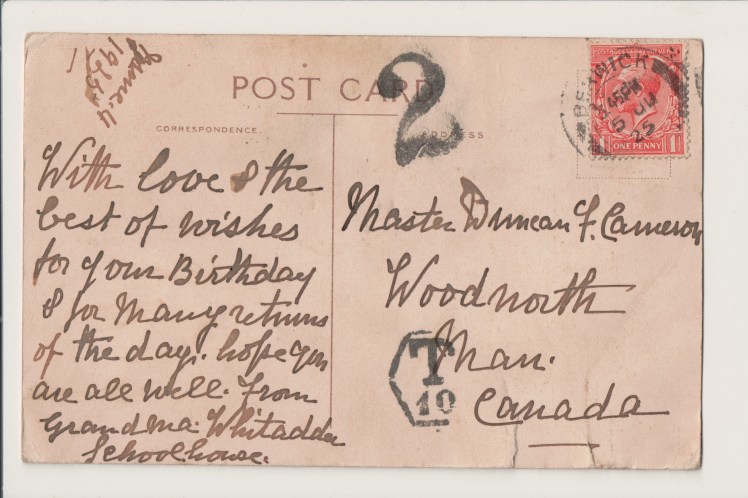 June 4
1925
POST CARD
2
CORRESPONDENCE.
ADDRESS
BERWICK
45PM
5 JU
25
ONE PENNY
With love & the
best of wishes
for your Birthday
& for Many returns
of the day. hope you
are all well. From
Grandma. Whitadder
Schoolhouse.
Master Duncan F. Cameron
Woodnorth
Man.
Canada
T
10